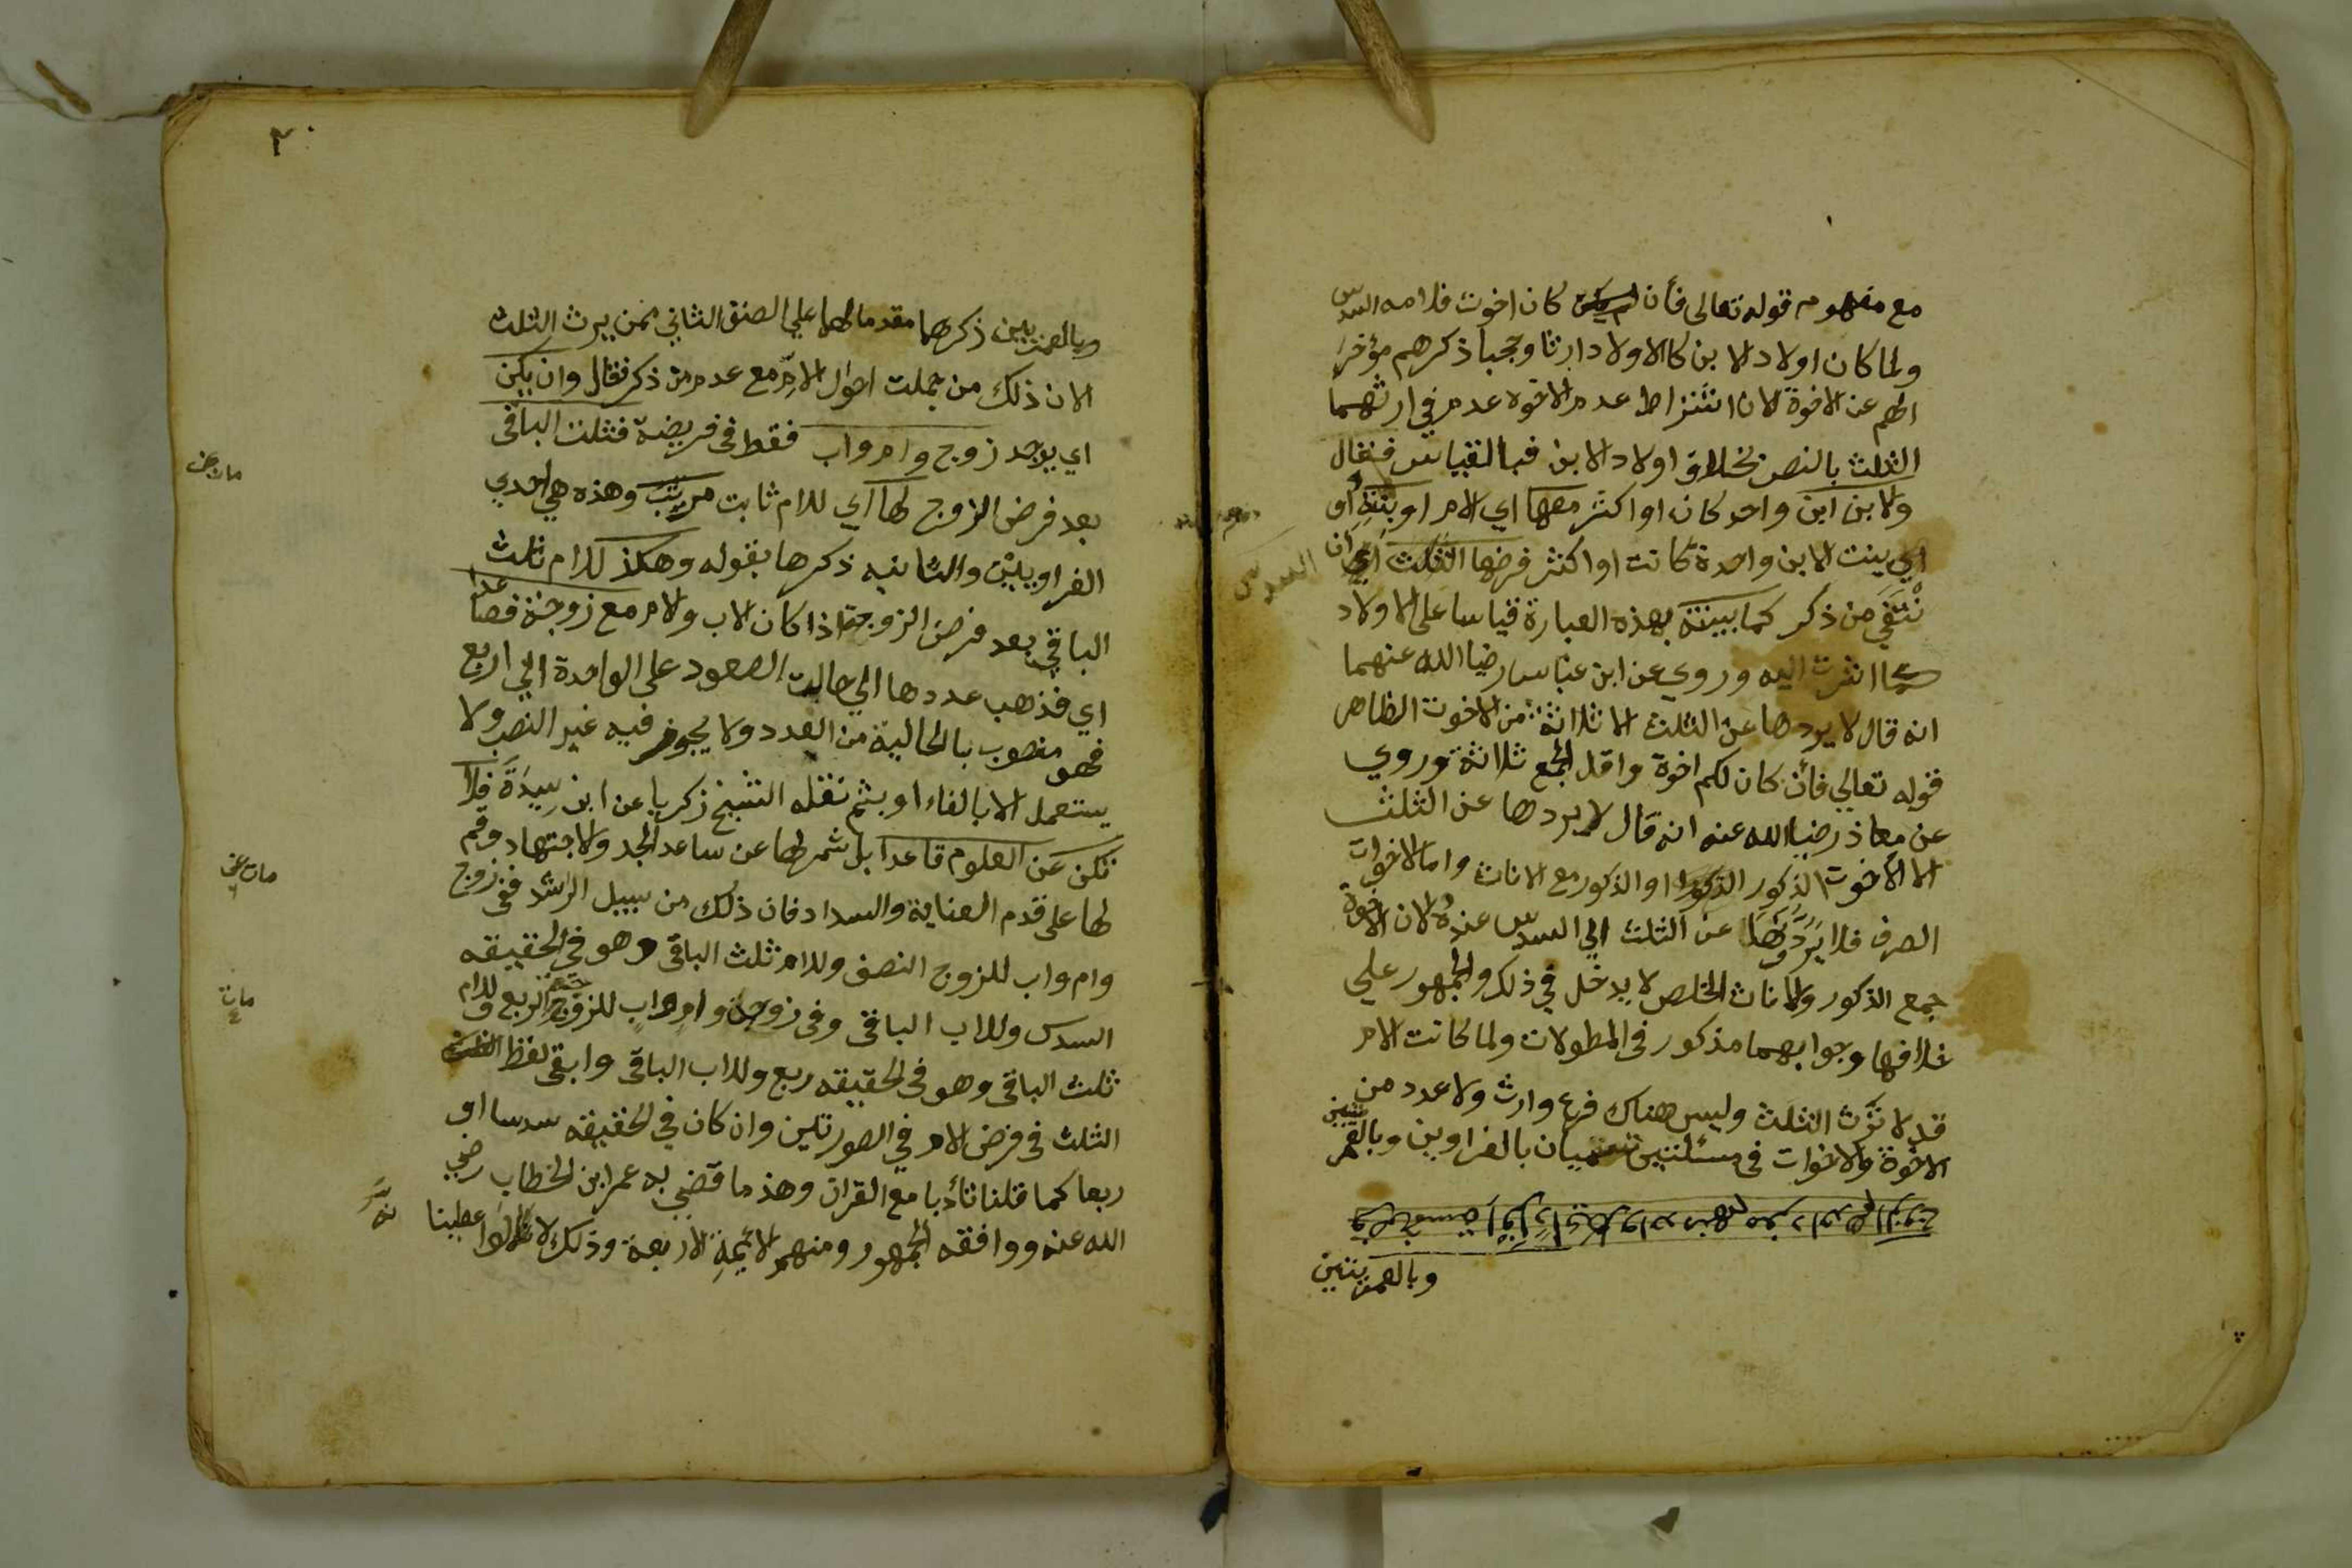 مع مفهوم قوله تعالى فأن كان اخوت فلامه السدس
ولما كان اولاد الابن كالاولاد ارثا وحجبا ذكرهم مؤخرا
لهم عن الاخوة لان اشتراط عدم الاخوه عدم في ارثهما
الثلث بالنص بخلاف اولاد الابن فبالقياس فقال
ولا بن ابن واحد كان او اكثر معها اي الام او بنته او
اي بنت الابن واحدة كانت او اكثر فرضها الثلث اي ان
نتفي من ذكر كما بينته بهذه العبارة قياسا على الاولاد
كما اشرت اليه وروي عن ابن عباس رضيا الله عنهما
انه قال لا يردها عن الثلث الا ثلاثة من الاخوت الظاهر
قوله تعالي فأن كان لكم اخوة واقل الجمع ثلاثة وروي
عن معاذ رضيا الله عنه انه قال لا يردها عن الثلث
الا الاخوت الذكور او الذكور مع الاناث واما الاخوات
الصرف فلا يردونها عن الثلث الي السدس عنده لان الاخوة
جمع الذكور والاناث الخلص لا يدخل في ذلك والجمهور علي
خلافها وجوابهما مذكور في المطولات ولما كانت الام
قد لا ترث الثلث وليس هناك فرع وارث ولا عدد من
الاخوة والاخوات في مسئلتين تسميان بالغراوين وبالغريبتين
وبالعمريتين
٢٠
وبالعمريتين ذكرهما مقدما لهما علي الصنف الثاني ممن يرث الثلث
الان ذلك من جملت احوال الام مع عدم من ذكر فقال وان يكن
اي يوجد زوج وام واب فقط في فريضة فثلث الباقي
بعد فرض الزوج لها اي للام ثابت مرتب وهذه هي احدي
الغراويين والثانيه ذكرها بقوله وهكذا للام ثلث
الباقي بعد فرض الزوجة اذا كان الاب والام مع زوجة فصاعدا
اي فذهب عددها الي حالت الصعود على الواحدة الي اربع
فهو منصوب بالحالية من العدد ولا يجوز فيه غير النصب ولا
يستعمل الا بالفاء او بثم نقله الشيخ زكريا عن ابن سيدة فلا
تكن عن العلوم قاعدا بل شمر لها عن ساعد الجد والاجتهاد وقم
لها على قدم العناية والسداد فان ذلك من سبيل الرشد ففي زوج
وام واب للزوج النصف وللام ثلث الباقي وهو في الحقيقه
السدس وللاب الباقي وفي زوجة وام واب للزوجة الربع وللام
ثلث الباقي وهو في الحقيقه ربع وللاب الباقي وابقي لفظ
الثلث في فرض الام في الصورتين وان كان في الحقيقه سدسا او
ربعا كما قلنا تأدبا مع القران وهذ ما قضي به عمر ابن الخطاب رضي
الله عنه ووافقه الجمهور ومنهم الائمة الاربعة وذلك لا اعطينا
السدس